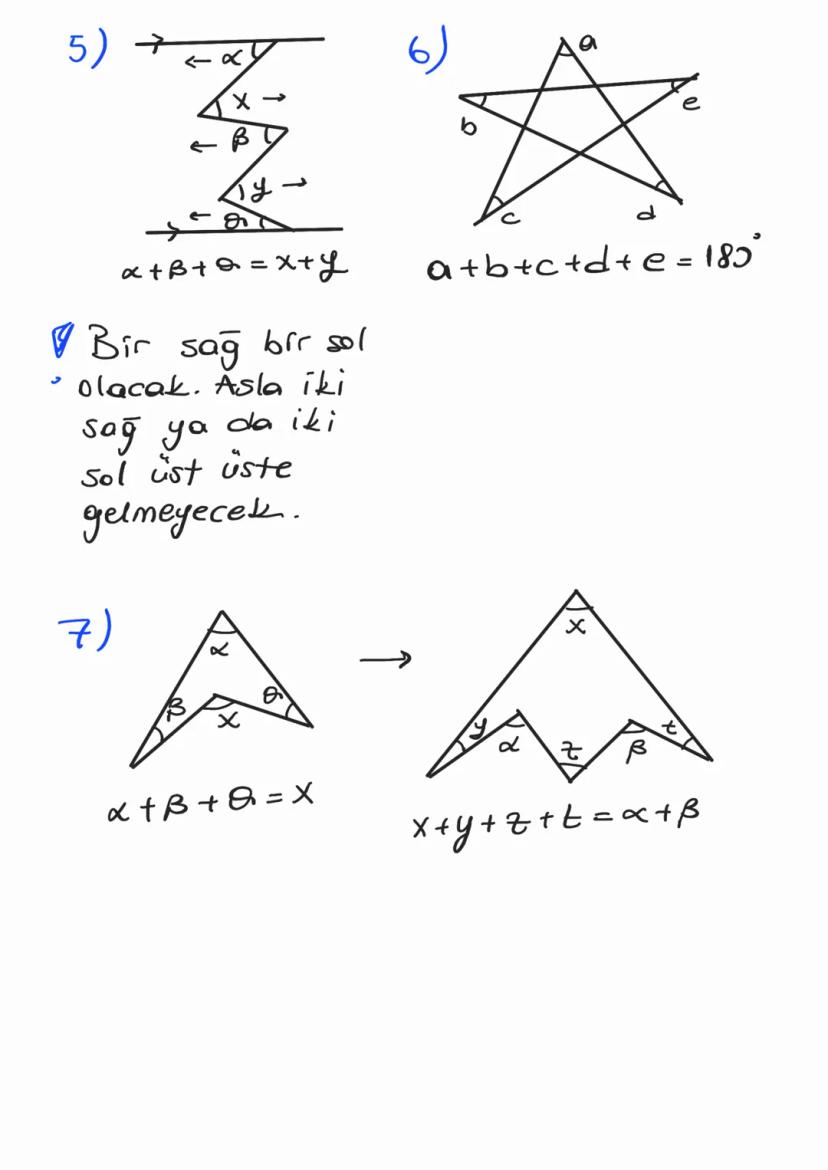 5)
← α
x →
← β
y →
← θ
α+β+θ = x+y
6)
a
b
e
c
d
a+b+c+d+e = 180°
Bir sağ bir sol
olacak. Asla iki
sağ ya da iki
sol üst üste
gelmeyecek.
7)
α
β
θ
x
α+β+θ = x
→
x
y
α
z
β
t
x+y+z+t = α+β